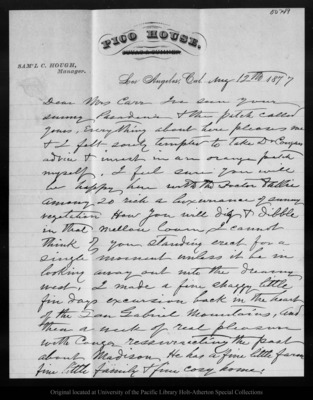 PICO HOUSE.
SAM'L C. HOUGH,
Manager.
Los Angeles, Cal Aug 12th 1877
Dear Mrs Carr I've seen your
sunny Pasadena & the patch called
yours. Everything about here pleases me
& I felt sorely tempted to take Dr Congar's
advice & invest in an orange patch
myself. I feel sure you will
be happy here with the Doctor
among so rich a luxuriance of sunny
vegetation. How you will dig & dibble
in that mellow loam. I cannot
think of you standing erect for a
single moment unless it be in
looking away out into the dreamy
west. I made a fine shaggy little
five days excursion back in the heart
of the San Gabriel Mountains, and
then a week of real pleasure
with Congar resurrecting the past
about Madison. He has a fine little farm
fine little family & fine cosy home.
Original located at University of the Pacific Library Holt-Atherton Special Collections.